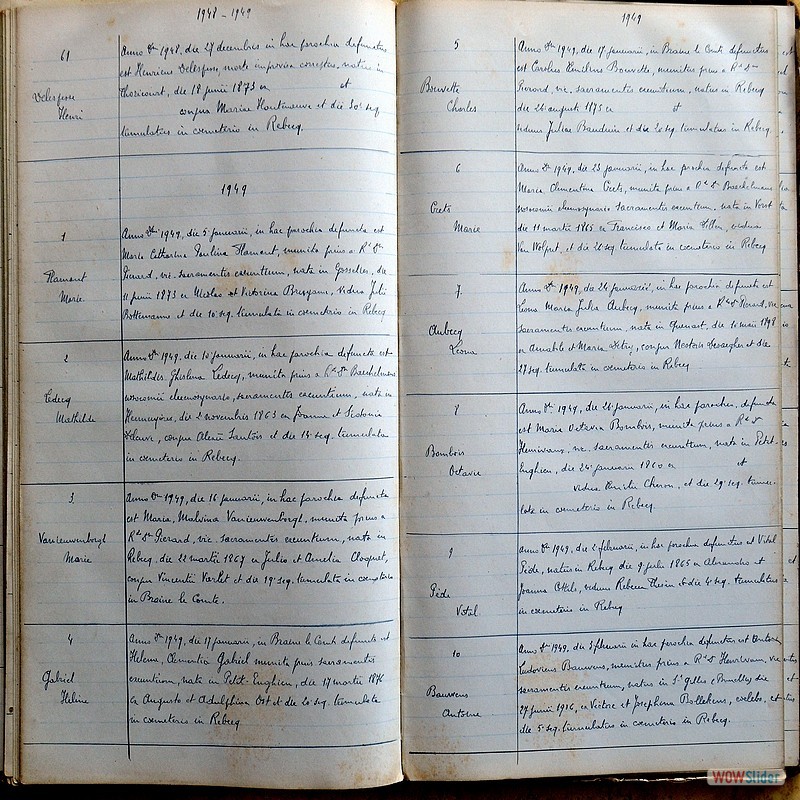 1948 - 1949
61
Delespesse
Henri
Anno Dni 1948, die 27 decembris in hac parochia defunctus
est Henricus Delespesse, morte improvisa correptus, natus in
Thoricourt, die 18 junii 1873 ex et
conjux Mariae et die 30a seq.
tumulatus in cemeterio in Rebecq.
1949
1
Flamant
Marie
Anno Dni 1949, die 5 januarii, in hac parochia defuncta est
Maria Catharina Paulina Flamant, munita prius a Rdo Dno
Gerard, vic. sacramentis exeuntium, nata in Gosselies, die
11 junii 1873 ex Nicolao et Victorina vidua Julii
et die 10 seq. tumulata in cemeterio in Rebecq
2
Leclercq
Mathilde
Anno Dni 1949, die 10 januarii, in hac parochia defuncta est
Mathildis Ghislena Leclercq, munita prius a Rdo Dno Boeckelmans
nosocomii eleemosynario, sacramentis exeuntium, nata in
Hennuyères, die 2 novembris 1863 ex Joanne et Sidonia
conjux et die 14 seq. tumulata
in cemeterio in Rebecq.
3
Vanlieuwenborgh
Marie
Anno Dni 1949, die 16 januarii, in hac parochia defuncta
est Maria, Malvina munita prius a
Rdo Dno Gerard, vic. sacramentis exeuntium, nata in
Rebecq, die 22 martii 1867 ex Julio et Amelia Cloquet,
conjux Vincentii Varlet et die 19a seq. tumulata in cemeterio
in Braine le Comte.
4
Gabriel
Helène
Anno Dni 1949, die 17 januarii, in Braine le Comte defuncta est
Helena, Clementia Gabriel munita prius sacramentis
exeuntium, nata in Petit-Enghien, die 17 martii
ex Augusto et Adulphina Ost et die 20 seq. tumulata
in cemeterio in Rebecq
1949
5
Bouvette
Charles
Anno Dni 1949, die 17 januarii, in Braine le Comte defunctus
est Carolus Bouvette, munitus prius a Rdo Dno
Gerard, vic. sacramentis exeuntium, natus in Rebecq
die 26 augusti 1875 ex et
viduus Juliae Bauduin et die 20 seq. tumulatus in Rebecq.
6
Crets
Marie
Anno Dni 1949, die 23 januarii, in hac parochia defuncta est
Maria Clementina Crets, munita prius a Rdo Dno Boeckelmans
nosocomii eleemosynario sacramentis exeuntium, nata in Vorst
die 11 martii 1865 ex Francisco et Maria vidua
et die 26 seq. tumulata in cemeterio in Rebecq
7
Aubecq
Léona
Anno Dni 1949, die 24 januarii, in hac parochia defuncta est
Leona Maria Julia Aubecq, munita prius a Rdo Dno Gerard, vic
sacramentis exeuntium, nata in Quenast, die 10 maii 1898
ex Amabile et Maria conjux Nestoris et die
27 seq. tumulata in cemeterio in Rebecq
8
Bombois
Octavie
Anno Dni 1949, die 26 januarii, in hac parochia, defuncta
est Maria Octavia Bombois, munita prius a Rdo Dno
vic. sacramentis exeuntium, nata in Petit-
Enghien, die 24 januarii 1860 ex et
vidua et die 29 seq. tumu-
lata in cemeterio in Rebecq.
9
Pède
Vital
Anno Dni 1949, die 2 februarii, in hac parochia defunctus est Vital
Pède, natus in Rebecq die 9 julii 1865 ex Alexandro et
Joanna viduus et die 4 seq. tumulatus
in cemeterio in Rebecq
10
Bauwens
Antoine
Anno Dni 1949, die 3 februarii in hac parochia defunctus est Antonius
Ludovicus Bauwens, munitus prius a Rdo Dno vic
sacramentis exeuntium, natus in St Gilles Bruxelles die
27 junii 1916, ex Victore et Josephina Bollekens, coelebs, et
die 5 seq. tumulatus in cemeterio in Rebecq.
WOWSlider